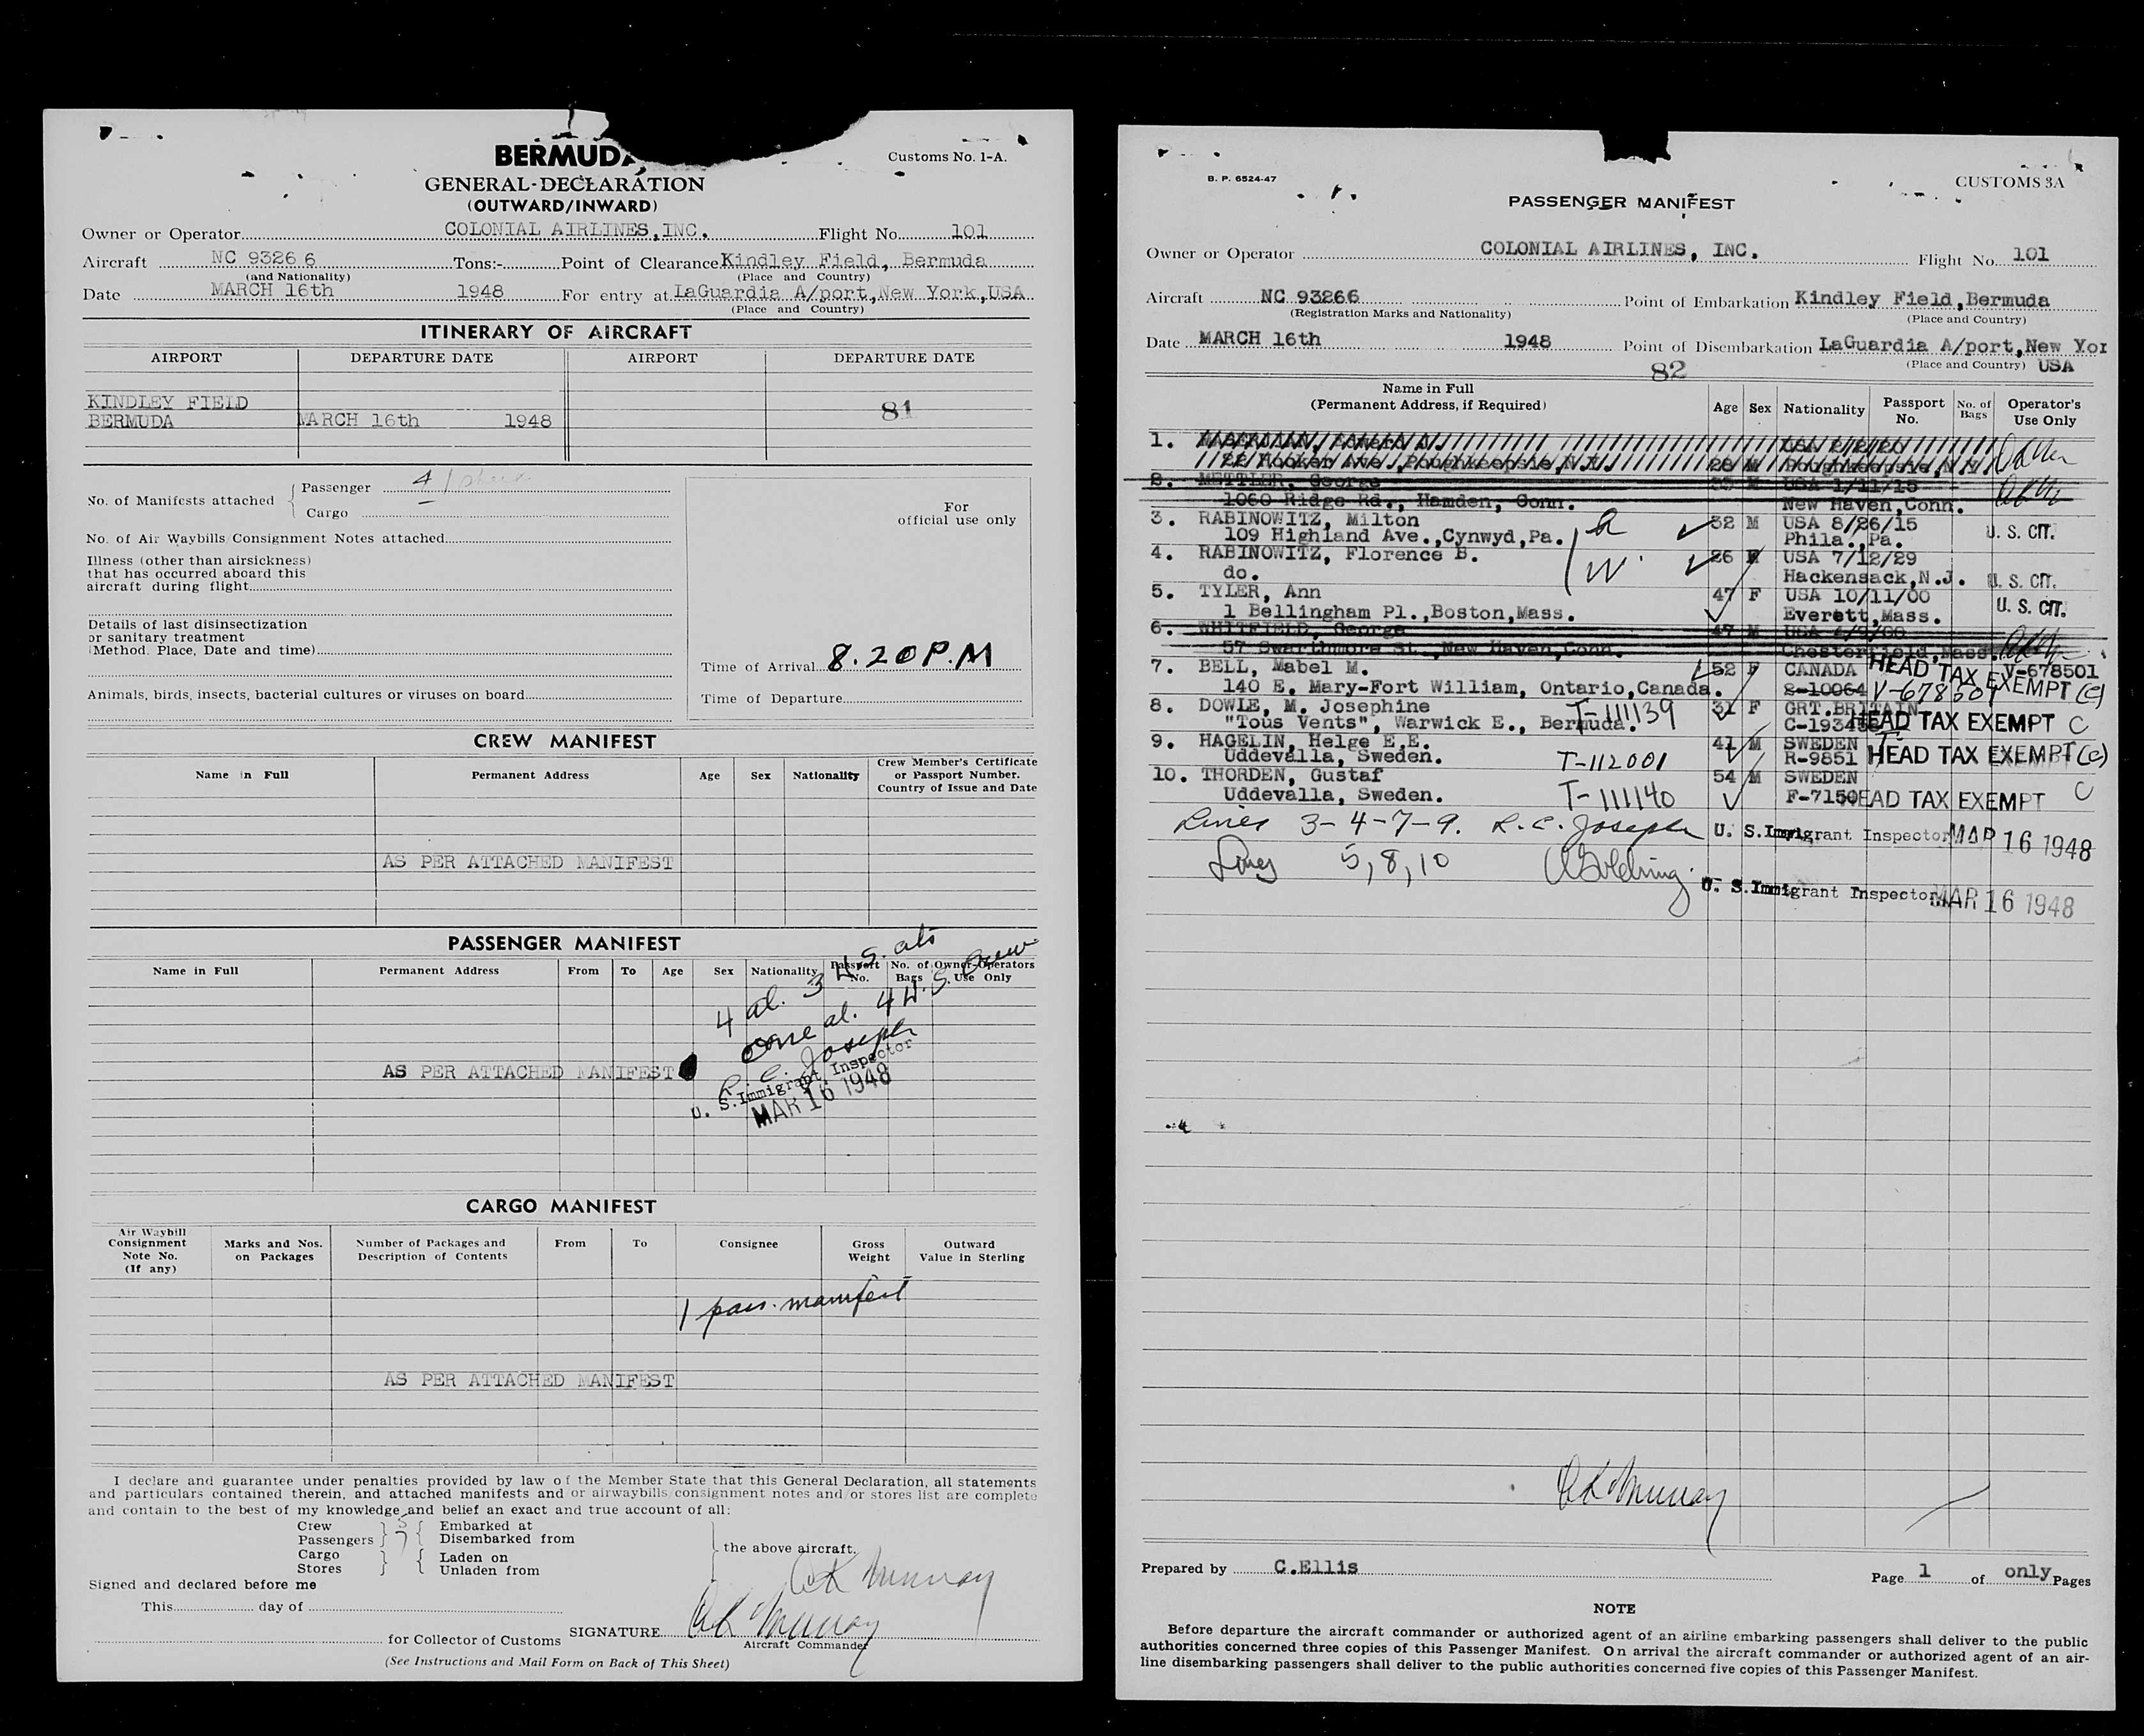 BERMUD
Customs No. 1-A.
GENERAL-DECLARATION
(OUTWARD/INWARD)
Owner or Operator COLONIAL AIRLINES, INC. Flight No. 101
Aircraft NC 93266 Tons:- Point of Clearance Kindley Field, Bermuda
(and Nationality) (Place and Country)
Date MARCH 16th 1948 For entry at LaGuardia A/port, New York, USA
(Place and Country)
ITINERARY OF AIRCRAFT
AIRPORT DEPARTURE DATE AIRPORT DEPARTURE DATE
KINDLEY FIELD
BERMUDA MARCH 16th 1948 81
No. of Manifests attached
Passenger 4
Cargo
For
official use only
No. of Air Waybills/Consignment Notes attached
Illness (other than airsickness)
that has occurred aboard this
aircraft during flight
Details of last disinsectization
or sanitary treatment
(Method. Place, Date and time)
Time of Arrival 8.20 P.M
Animals, birds, insects, bacterial cultures or viruses on board
Time of Departure
CREW MANIFEST
Name in Full Permanent Address Age Sex Nationality Crew Member's Certificate
or Passport Number.
Country of Issue and Date
AS PER ATTACHED MANIFEST
PASSENGER MANIFEST
Name in Full Permanent Address From To Age Sex Nationality Passport No. No. of Bags Owner-Operators Use Only
4 al. 3 U.S. cits
one al. 4 U.S. Crew
R. C. Joseph
U. S. Immigrant Inspector
MAR 16 1948
AS PER ATTACHED MANIFEST
CARGO MANIFEST
Air Waybill
Consignment
Note No.
(If any)
Marks and Nos.
on Packages
Number of Packages and
Description of Contents
From To Consignee
Gross
Weight
Outward
Value in Sterling
1 pass. manifest
AS PER ATTACHED MANIFEST
I declare and guarantee under penalties provided by law of the Member State that this General Declaration, all statements
and particulars contained therein, and attached manifests and or airwaybills/consignment notes and/or stores list are complete
and contain to the best of my knowledge and belief an exact and true account of all:
Crew 5 Embarked at
Passengers 7 Disembarked from
Cargo Laden on
Stores Unladen from
the above aircraft.
Signed and declared before me
This day of
for Collector of Customs SIGNATURE
Aircraft Commander
(See Instructions and Mail Form on Back of This Sheet)
B. P. 6524-47
CUSTOMS 3A
PASSENGER MANIFEST
Owner or Operator COLONIAL AIRLINES, INC. Flight No. 101
Aircraft NC 93266 Point of Embarkation Kindley Field, Bermuda
(Registration Marks and Nationality) (Place and Country)
Date MARCH 16th 1948 Point of Disembarkation LaGuardia A/port, New Yor
82 (Place and Country) USA
Name in Full
(Permanent Address, if Required)
Age Sex Nationality Passport No. No. of Bags Operator's Use Only
1. Edward USA 2/2/20
22 Hooker Ave., Poughkeepsie, N.Y. 28 M Poughkeepsie, N.Y.
2. METTLER, George M USA 1/11/15
1060 Ridge Rd., Hamden, Conn. New Haven, Conn.
3. RABINOWITZ, Milton 32 M USA 8/26/15
109 Highland Ave., Cynwyd, Pa. Phila., Pa. U. S. CIT.
4. RABINOWITZ, Florence B. 26 F USA 7/12/29
do. Hackensack, N.J. U. S. CIT.
5. TYLER, Ann 47 F USA 10/11/00
1 Bellingham Pl., Boston, Mass. Everett, Mass. U. S. CIT.
6. WHITFIELD, George 47 M USA 4/9/00
57 Swarthmore St., New Haven, Conn. Chesterfield, Mass.
7. BELL, Mabel M. 52 F CANADA HEAD TAX EXEMPT (C) V-678501
140 E. Mary-Fort William, Ontario, Canada. 2-10064 V-678501
8. DOWLE, M. Josephine T-111139 31 F GRT. BRITAIN
"Tous Vents", Warwick E., Bermuda. C-1934 HEAD TAX EXEMPT C
9. HAGELIN, Helge E.E. 41 M SWEDEN
Uddevalla, Sweden. T-112001 R-9851 HEAD TAX EXEMPT (C)
10. THORDEN, Gustaf 54 M SWEDEN
Uddevalla, Sweden. T-111140 F-7150 EAD TAX EXEMPT C
Lines 3-4-7-9. R. C. Joseph U. S. Immigrant Inspector MAR 16 1948
Lines 5, 8, 10 U. S. Immigrant Inspector MAR 16 1948
Prepared by C. Ellis
Page 1 of only Pages
NOTE
Before departure the aircraft commander or authorized agent of an airline embarking passengers shall deliver to the public
authorities concerned three copies of this Passenger Manifest. On arrival the aircraft commander or authorized agent of an air-
line disembarking passengers shall deliver to the public authorities concerned five copies of this Passenger Manifest.